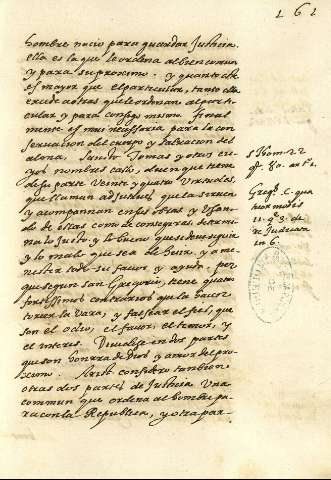 161
hombre nacio para guardar Justicia.
ella es la que le ordena al bien comun
y para su proximo. y quanto este
es mayor que el particular, tanto ella
excede a otras que le ordenan al parti
cular y para consigo mismo. final
mente es mui necessaria para la con
seruacion del cuerpo y saluacion del
alma. Santo Tomas y otros cu
yos nombres callo, dicen que tiene
de su parte Veinte y quatro Virtudes,
que llaman adjuntas, que la siruen
y acompañan en sus obras y
de ellas como consegeras, determi
na lo Justo y lo bueno que se deue seguir
y lo malo que se a de huir, y a me
nester todo su fauor y ayuda. por
que segun san Gregorio, tiene quatro
fortissimos contrarios que la hacen
torcer la Vara, y falsear el fiel, que
son el odio, el fauor, el temor, y
el interes. Diuidese en dos partes
que son honrra de Dios y amor del pro
ximo. Arist. considera tambien
otras dos partes de Justicia Una
commun que ordena al hombre pa
ra con la Republica, y otra par-
S. Thom. 22
q. 80. art.
Greg. C. qua
tuor modis
11. q. 3. de
re Judicata
in 6.